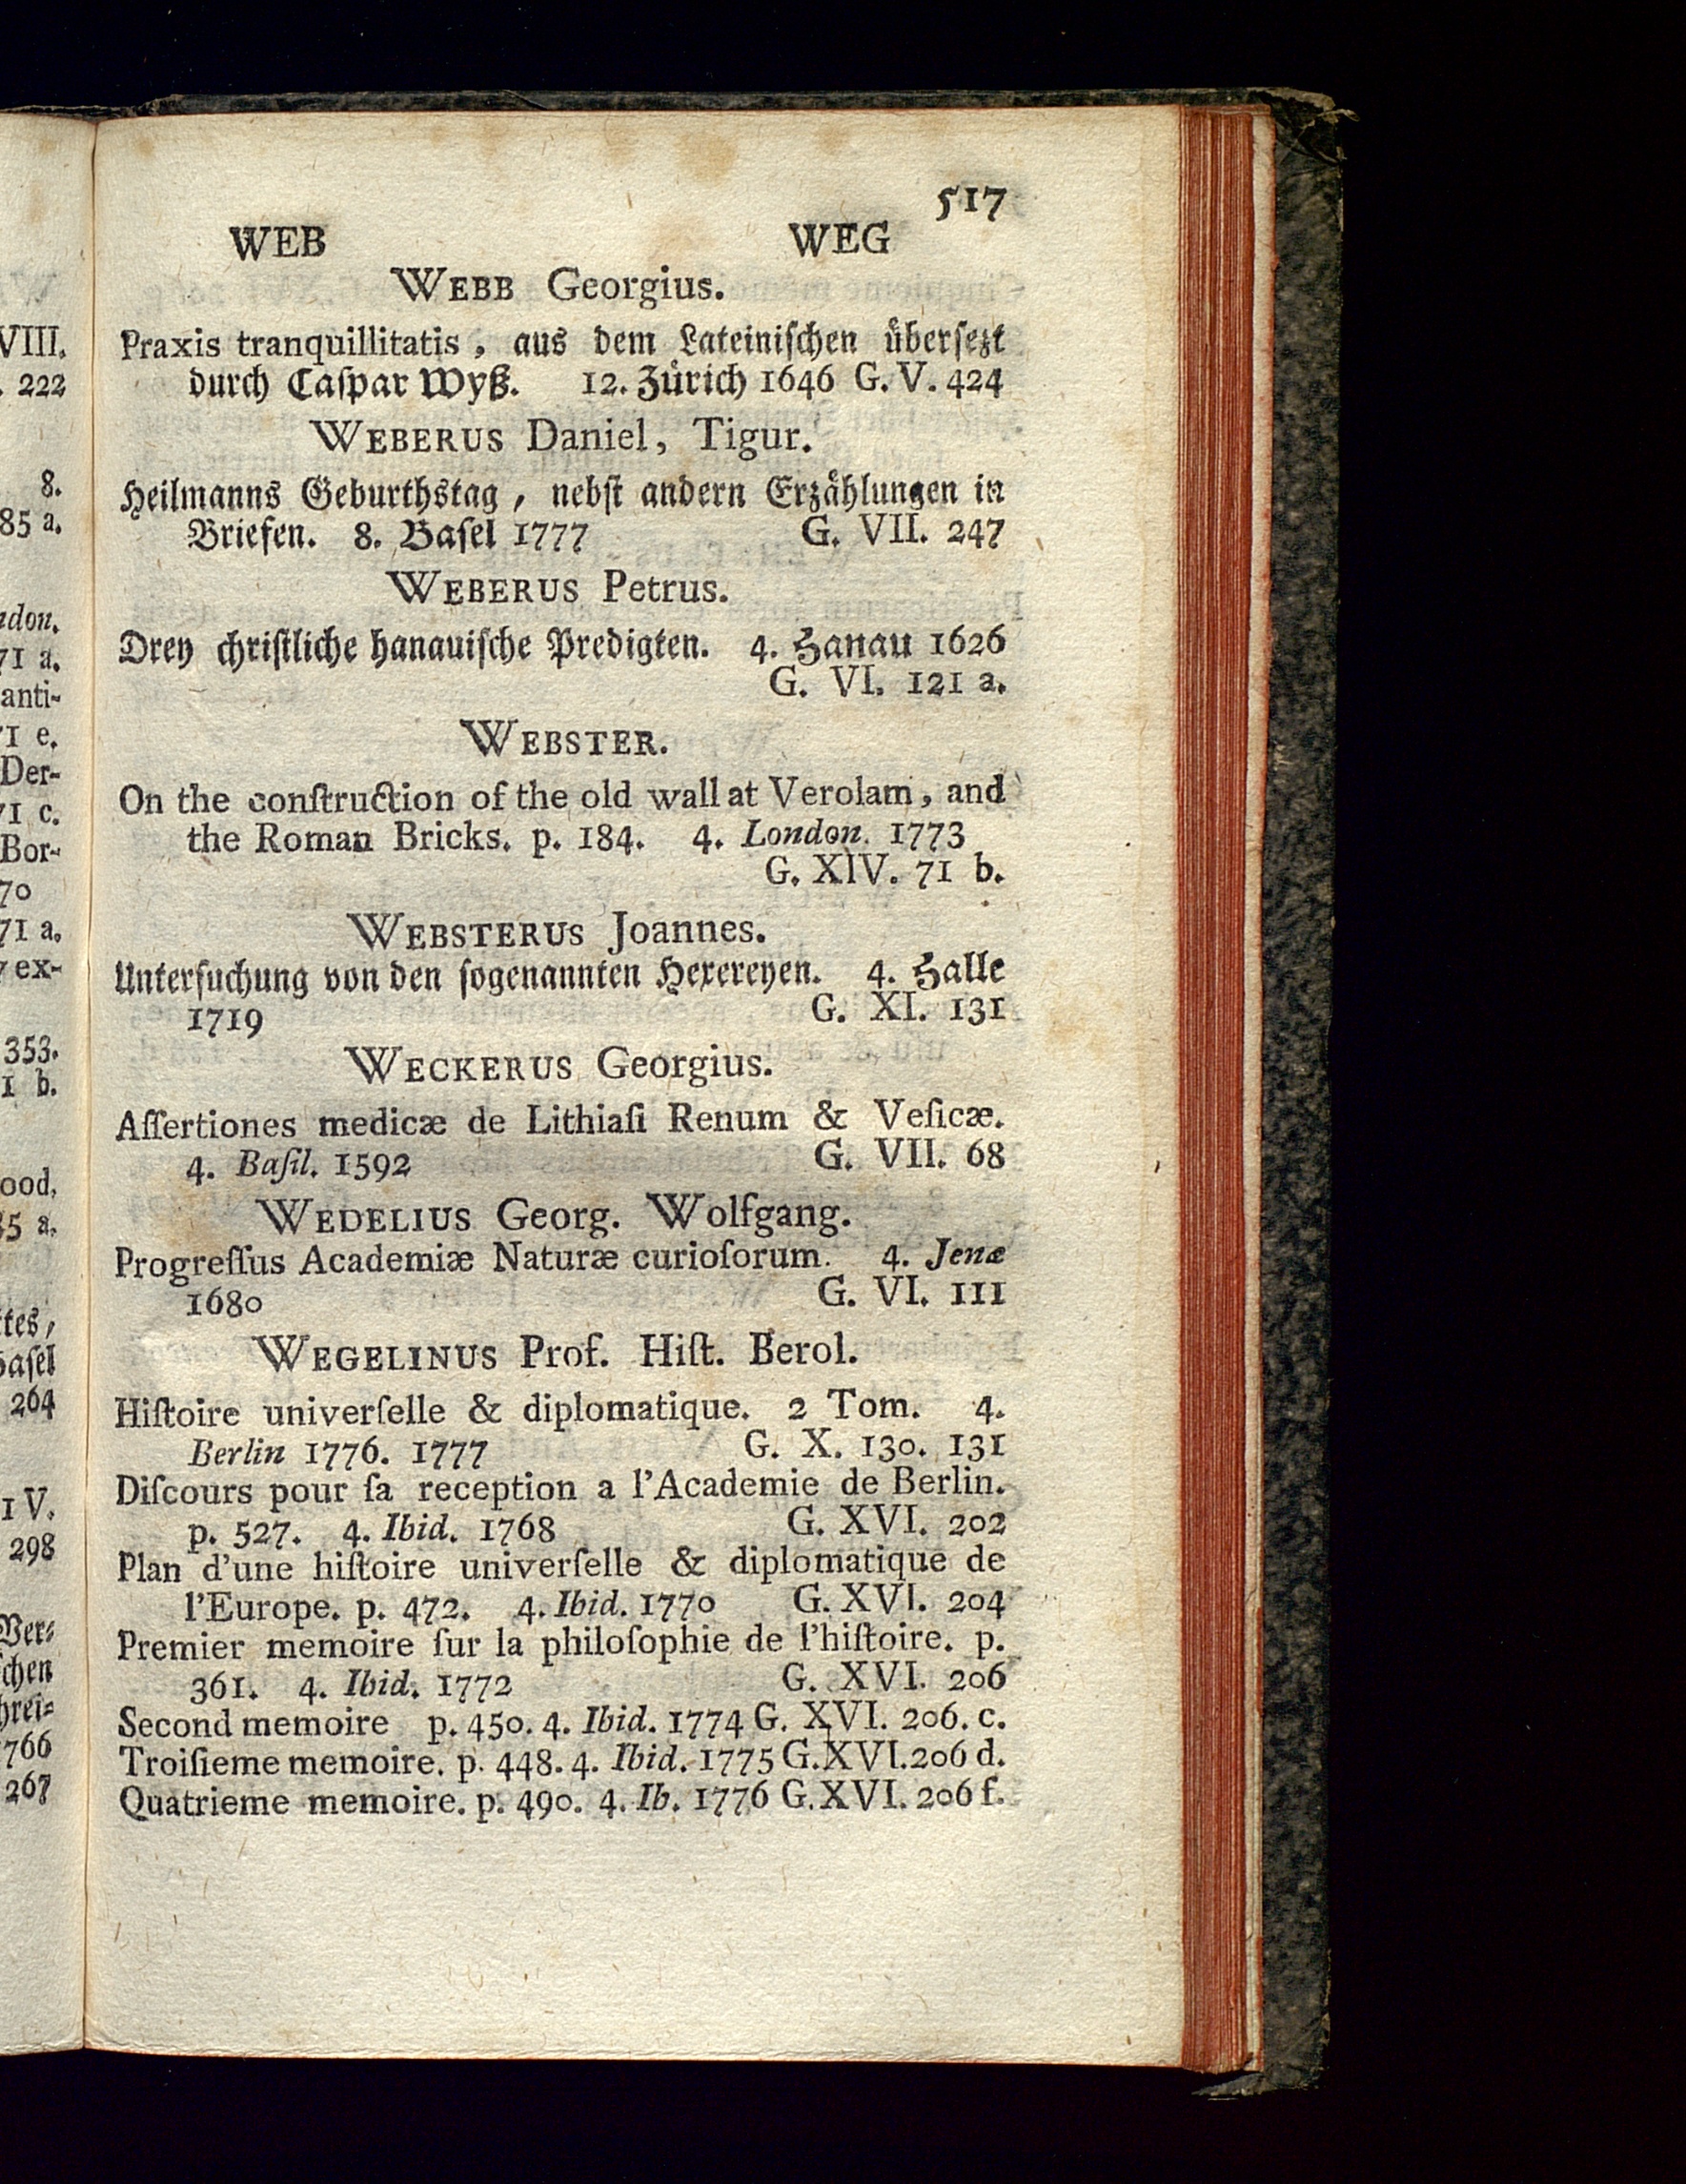 VIII.
222
8.
85 a.
ndon.
71 a.
anti-
71 e.
Der-
71 c.
Bor-
70
71 a.
ex-
353.
1 b.
ood,
a.
264
1 V.
298
Ver-
schen
hrei-
766
267
517
WEB WEG
WEBB Georgius.
Praxis tranquillitatis, aus dem Lateiniſchen uͤberſezt
durch Caſpar Wyß. 12. Zuͤrich 1646 G. V. 424
WEBERUS Daniel, Tigur.
Heilmanns Geburthstag, nebſt andern Erzaͤhlungen in
Briefen. 8. Baſel 1777 G. VII. 247
WEBERUS Petrus.
Drey chriſtliche hanauiſche Predigten. 4. Hanau 1626
G. VI. 121 a.
WEBSTER.
On the conſtruction of the old wall at Verolam, and
the Roman Bricks. p. 184. 4. London. 1773
G. XIV. 71 b.
WEBSTERUS Joannes.
Unterſuchung von den ſogenannten Hexereyen. 4. Halle
1719 G. XI. 131
WECKERUS Georgius.
Aſſertiones medicæ de Lithiaſi Renum & Veſicæ.
4. Baſil. 1592 G. VII. 68
WEDELIUS Georg. Wolfgang.
Progreſſus Academiæ Naturæ curioſorum. 4. Jenæ
1680 G. VI. 111
WEGELINUS Prof. Hiſt. Berol.
Hiſtoire univerſelle & diplomatique. 2 Tom. 4.
Berlin 1776. 1777 G. X. 130. 131
Diſcours pour ſa reception a l'Academie de Berlin.
p. 527. 4. Ibid. 1768 G. XVI. 202
Plan d'une hiſtoire univerſelle & diplomatique de
l'Europe. p. 472. 4. Ibid. 1770 G. XVI. 204
Premier memoire ſur la philoſophie de l'hiſtoire. p.
361. 4. Ibid. 1772 G. XVI. 206
Second memoire p. 450. 4. Ibid. 1774 G. XVI. 206. c.
Troiſieme memoire. p. 448. 4. Ibid. 1775 G. XVI. 206 d.
Quatrieme memoire. p. 490. 4. Ib. 1776 G. XVI. 206 f.